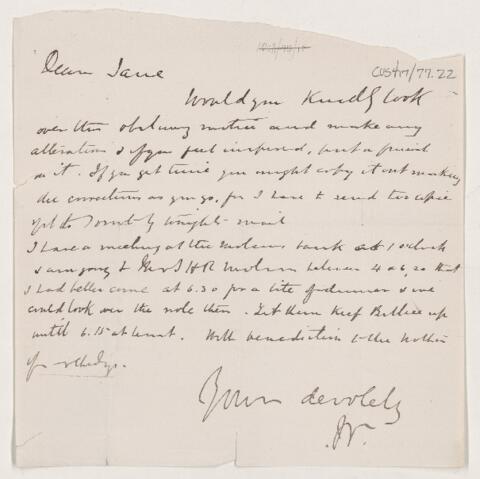 CUS417/77.22
Dear Jane
Would you Kindly look
over this obituary notice and make any
alterations if you feel inspired, but a friend
If you get time you might copy it out making
the corrections as you go, for I have to send two copies
by tonight's mail
I have a meeting at the Molsons bank at 1 o'clock
& am going to Mrs J H R Molson between 4 & 6, so that
I had better come at 6.30 for a bite of dinner & we
could look over the note then. Let them Keep Billie up
until 6.15 at least. With benediction to the Mother
Yours devotedly